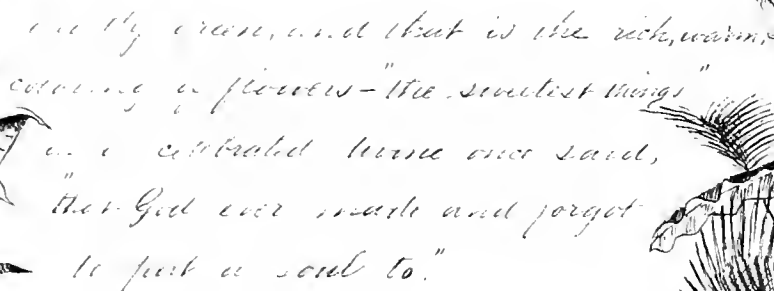 green, and that is the rich, warm,
coloring of flowers—"the sweetest things"
a celebrated divine once said,
"that God ever made and forgot
to put a soul to."